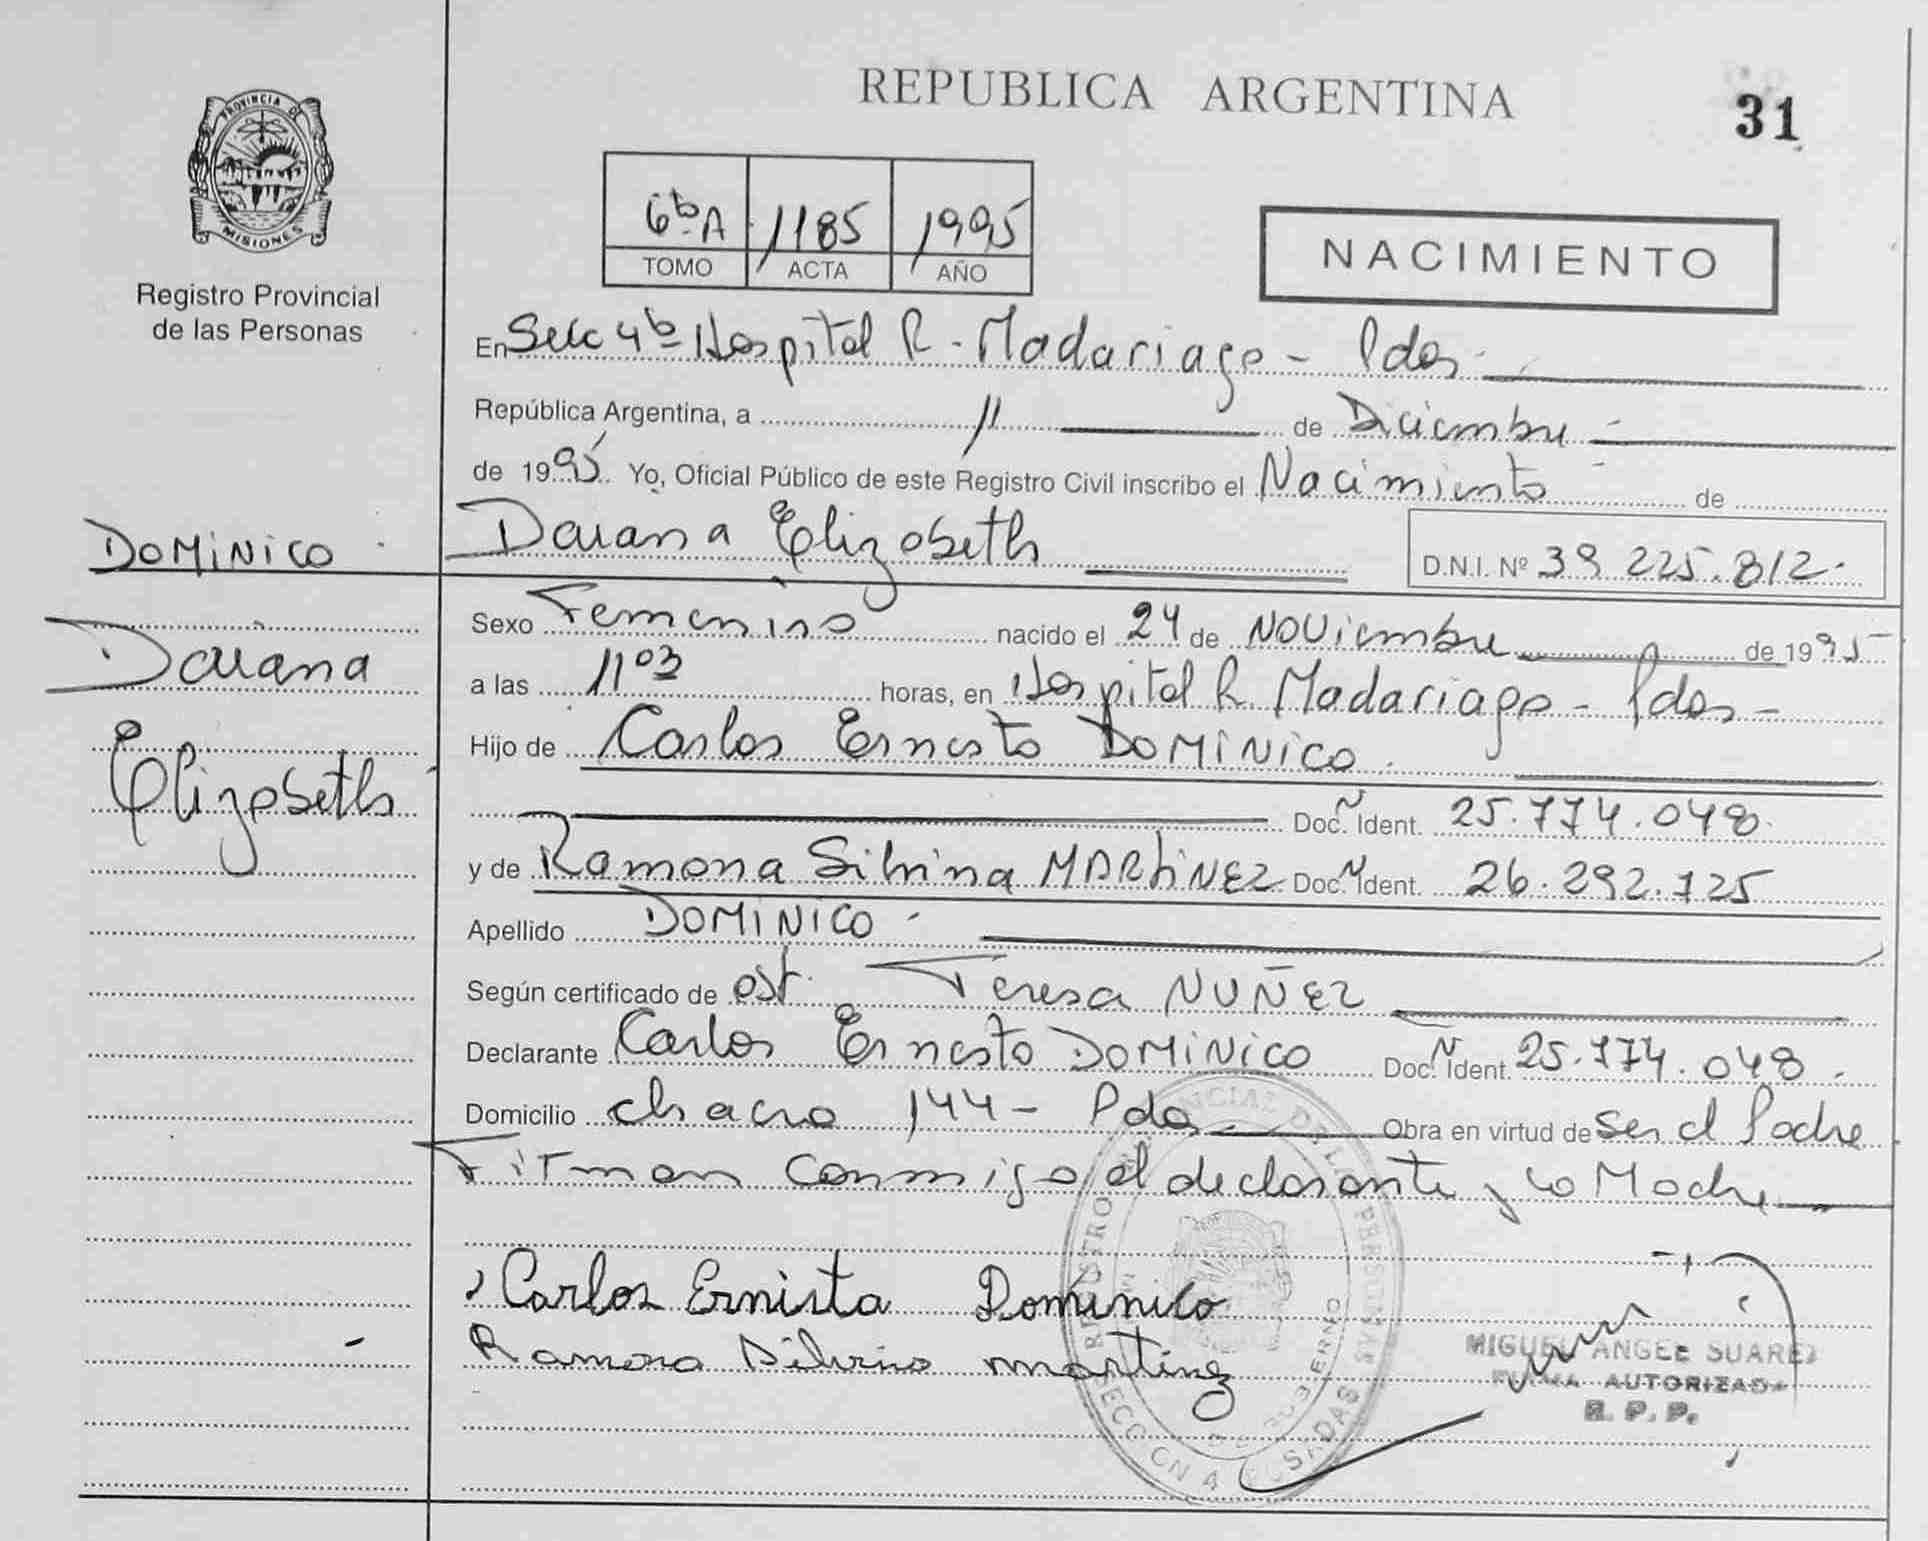 REPUBLICA ARGENTINA
31
PROVINCIA DE
MISIONES
Registro Provincial
de las Personas
6ª A 1185 1995
TOMO ACTA AÑO
NACIMIENTO
En Secc 4ª Hospital R. Madariaga - Pdas -
República Argentina, a 11 de Diciembre -
de 1995 Yo, Oficial Público de este Registro Civil inscribo el Nacimiento de
DOMINICO
Daiana Elizabeth
D.N.I. Nº 39 225.812.
Sexo Femenino nacido el 24 de Noviembre de 1995
Daiana
a las 11 03 horas, en Hospital R. Madariaga - Pdas -
Elizabeth
Hijo de Carlos Ernesto DOMINICO.
Doc. Ident. 25.774.048.
y de Ramona Silvina MARTINEZ Doc. Ident. 26.292.125
Apellido DOMINICO -
Según certificado de Ost. Teresa NUÑEZ
Declarante Carlos Ernesto DOMINICO Doc. Ident. 25.774.048.
Domicilio chacra 144 - Pdas Obra en virtud de Ser el Padre
Firman conmigo el declarante y la Madre
Carlos Ernista Domínico
Ramona Silvina martinez
MIGUEL ANGEL SUAREZ
FIRMA AUTORIZADA
R. P. P.
REGISTRO PROVINCIAL DE LAS PERSONAS
SECCION 4 POSADAS